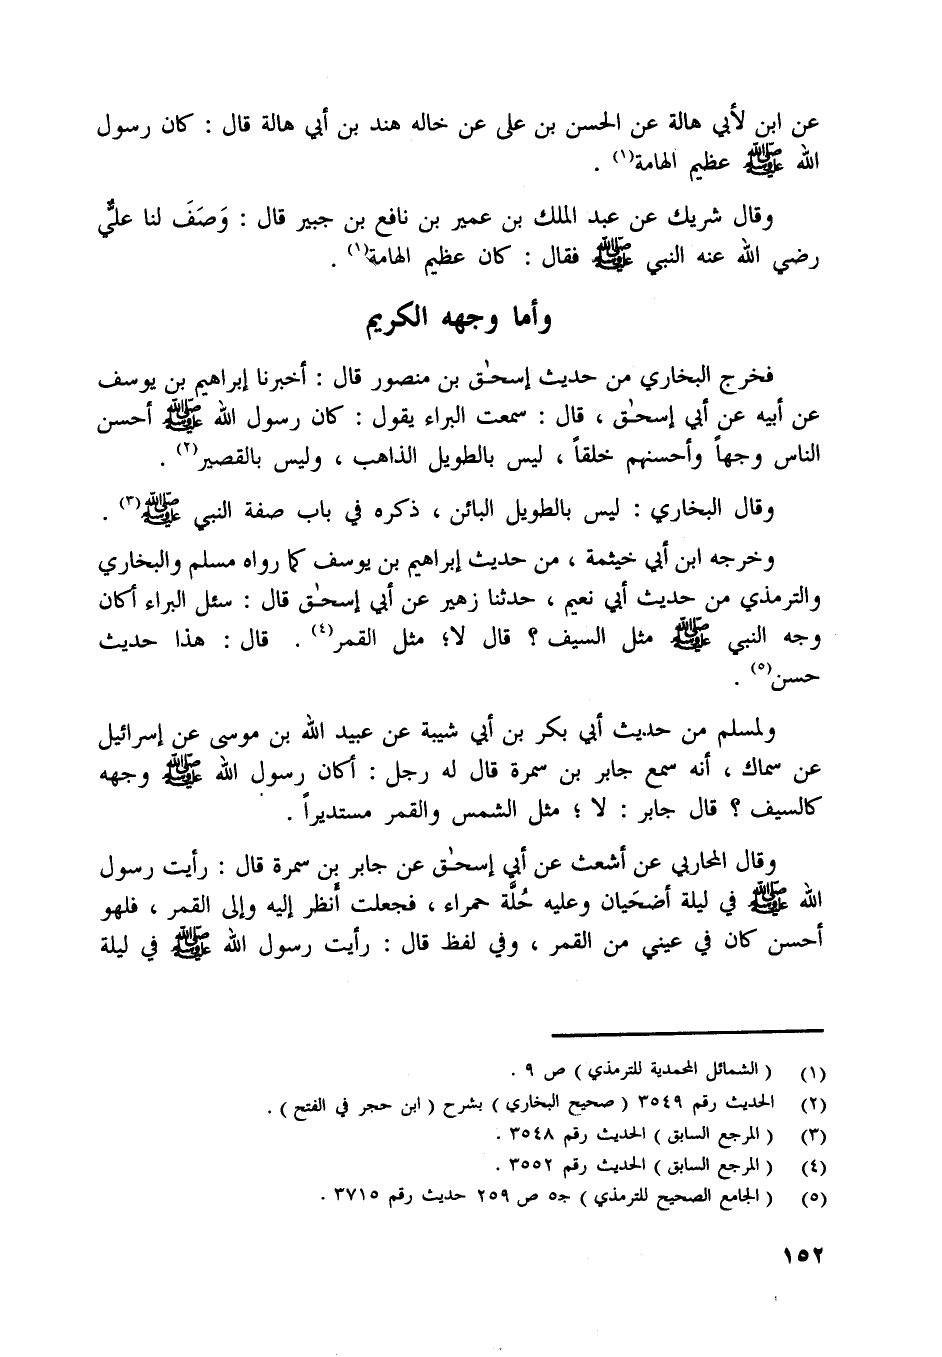 عن ابن لأبي هالة عن الحسن بن على عن خاله هند بن أبي هالة قال : كان رسول
الله ﷺ عظيم الهامة(١) .
وقال شريك عن عبد الملك بن عمير بن نافع بن جبير قال : وَصَفَ لنا عليٌّ
رضي الله عنه النبي ﷺ فقال : كان عظيم الهامة(١) .
وأما وجهه الكريم
فخرج البخاري من حديث إسحٰق بن منصور قال : أخبرنا إبراهيم بن يوسف
عن أبيه عن أبي إسحٰق ، قال : سمعت البراء يقول : كان رسول الله ﷺ أحسن
الناس وجهاً وأحسنهم خلقاً ، ليس بالطويل الذاهب ، وليس بالقصير(٢) .
وقال البخاري : ليس بالطويل البائن ، ذكره في باب صفة النبي ﷺ(٣) .
وخرجه ابن أبي خيثمة ، من حديث إبراهيم بن يوسف كما رواه مسلم والبخاري
والترمذي من حديث أبي نعيم ، حدثنا زهير عن أبي إسحٰق قال : سئل البراء أكان
وجه النبي ﷺ مثل السيف ؟ قال لا؛ مثل القمر(٤) . قال : هذا حديث
حسن(٥) .
ولمسلم من حديث أبي بكر بن أبي شيبة عن عبيد الله بن موسى عن إسرائيل
عن سماك ، أنه سمع جابر بن سمرة قال له رجل : أكان رسول الله ﷺ وجهه
كالسيف ؟ قال جابر : لا ؛ مثل الشمس والقمر مستديراً .
وقال المحاربي عن أشعث عن أبي إسحٰق عن جابر بن سمرة قال : رأيت رسول
الله ﷺ في ليلة أضحَيان وعليه حُلَّة حمراء ، فجعلت أنظر إليه وإلى القمر ، فلهو
أحسن كان في عيني من القمر ، وفي لفظ قال : رأيت رسول الله ﷺ في ليلة
(١) ( الشمائل المحمدية للترمذي ) ص ٩ .
(٢) الحديث رقم ٣٥٤٩ ( صحيح البخاري ) بشرح ( ابن حجر في الفتح ) .
(٣) ( المرجع السابق ) الحديث رقم ٣٥٤٨ .
(٤) ( المرجع السابق ) الحديث رقم ٣٥٥٢ .
(٥) ( الجامع الصحيح للترمذي ) جـ٥ ص ٢٥٩ حديث رقم ٣٧١٥ .
١٥٢